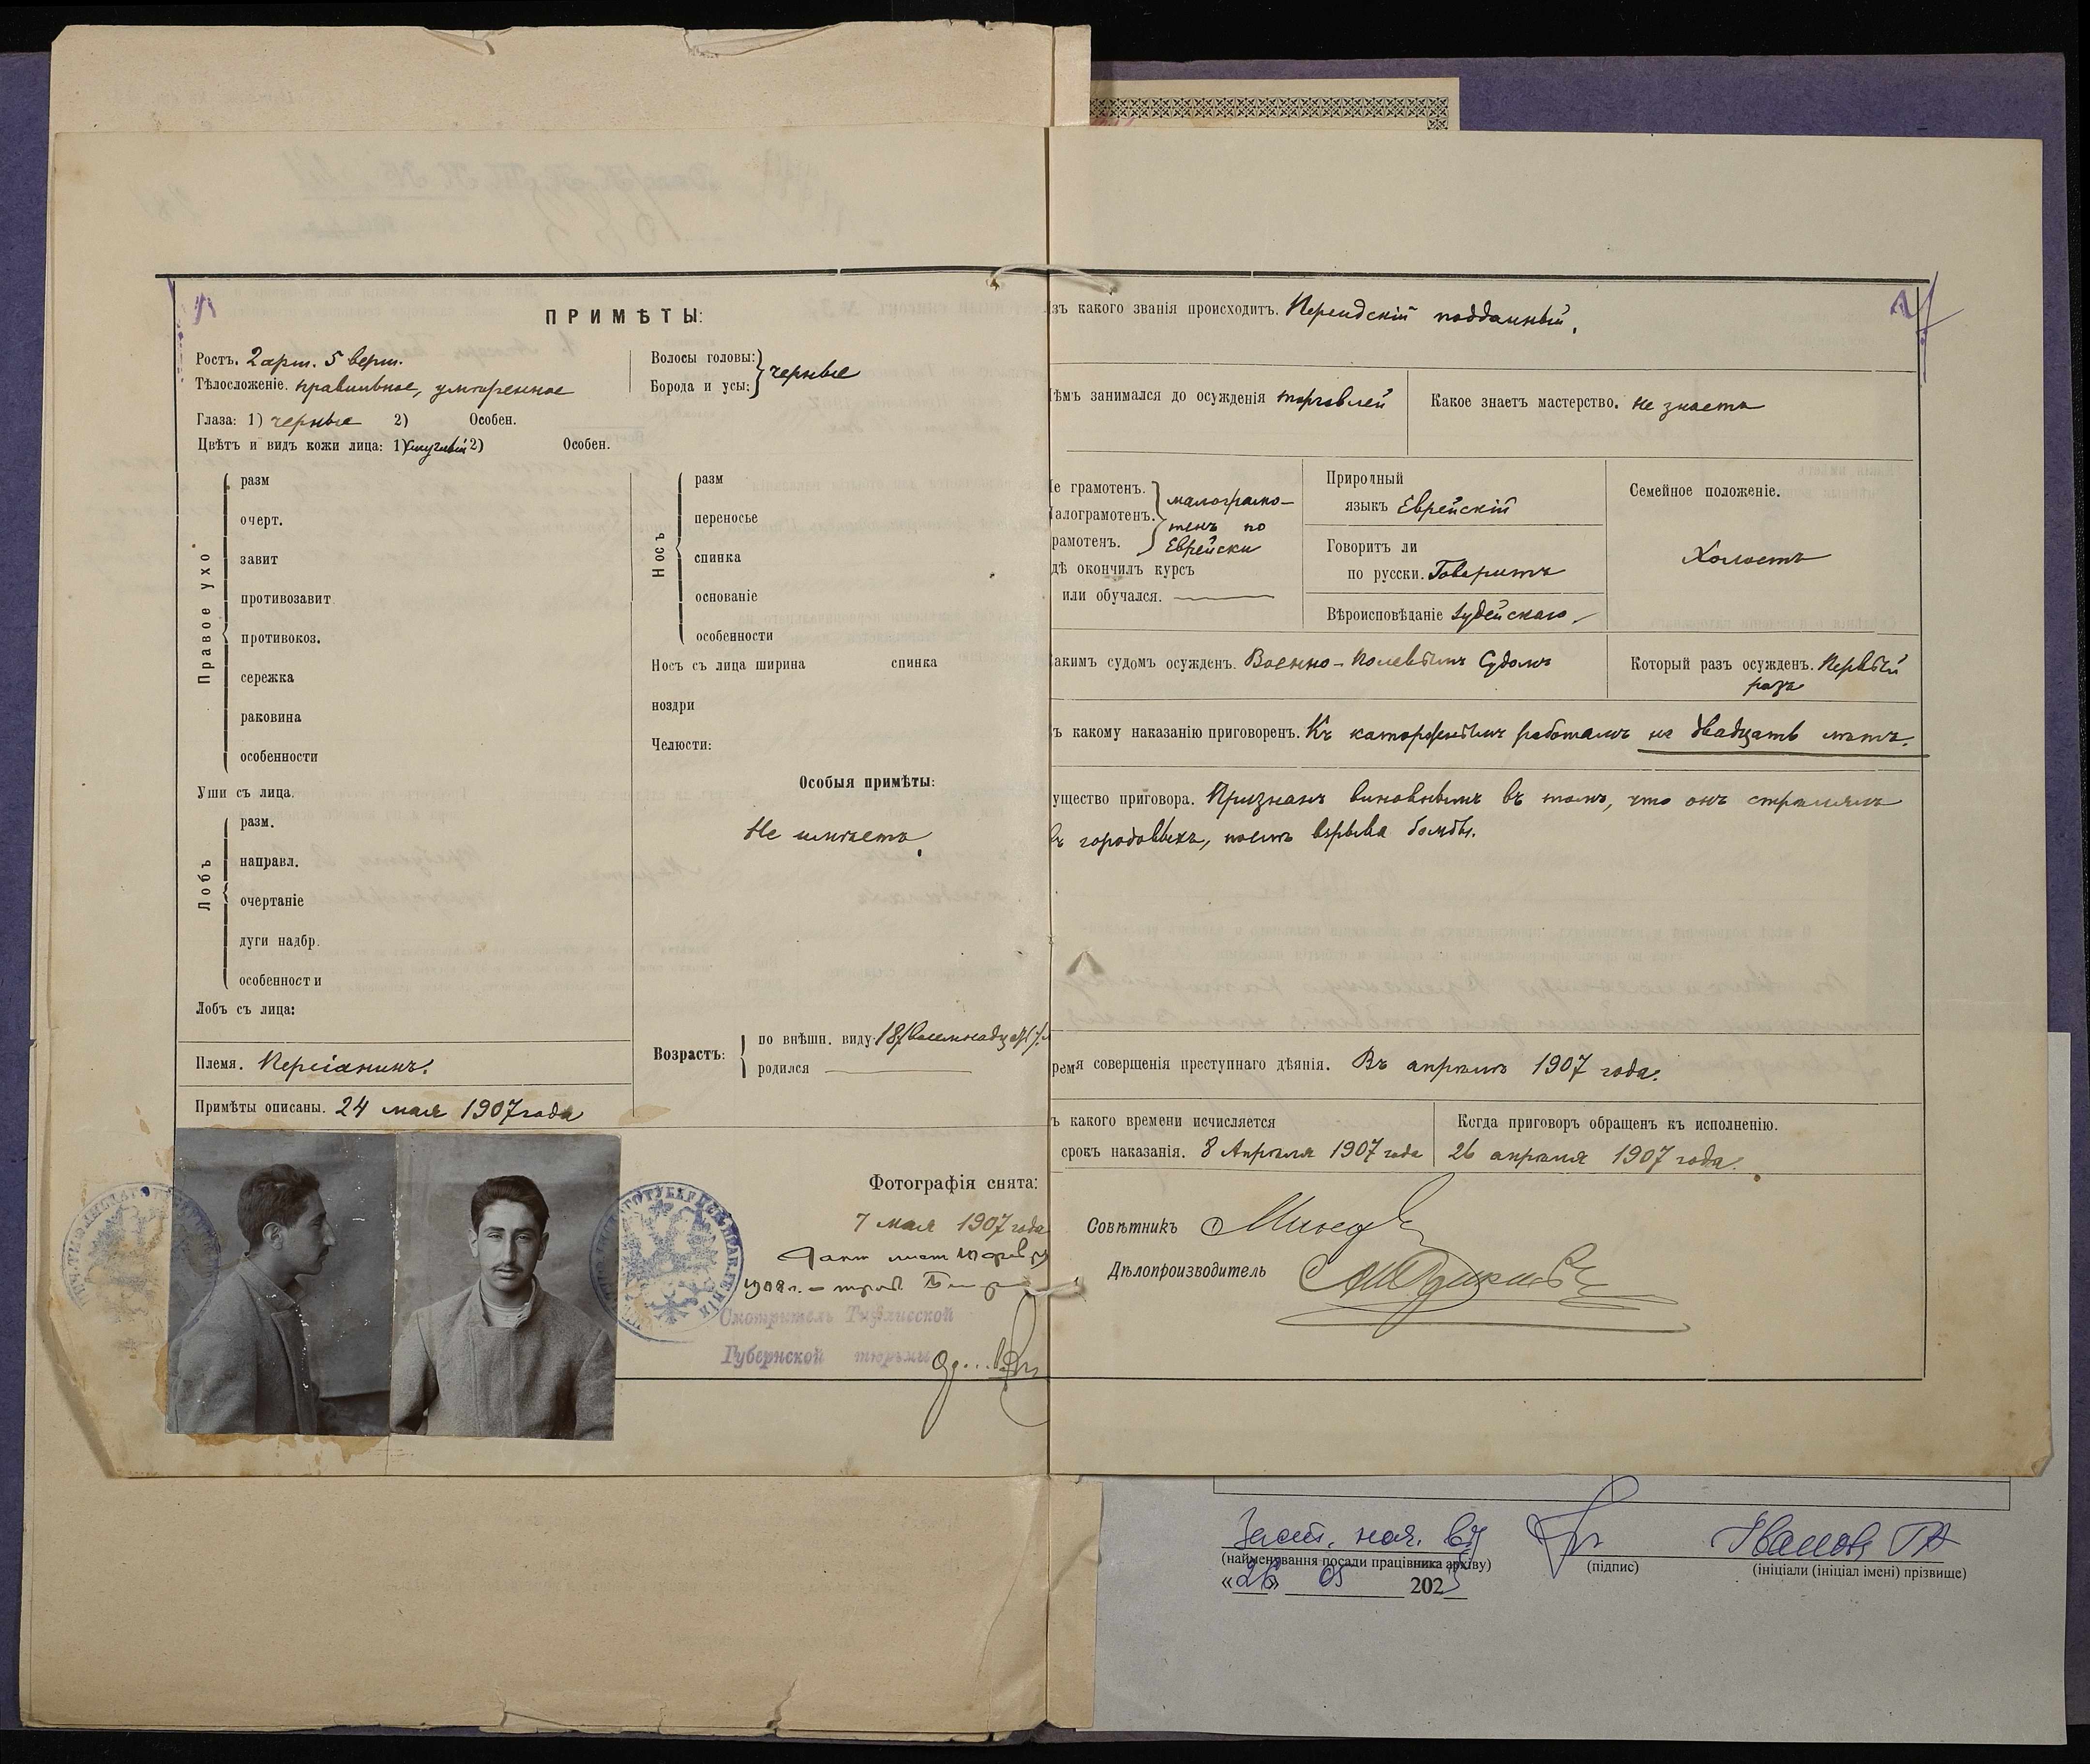 ПРИМѢТЫ:
Ростъ. 2 арш. 5 верш.
Тѣлосложеніе. правильное, умѣренное
Волосы головы: } черные
Борода и усы: }
Глаза: 1) черные 2) Особен.
Цвѣтъ и видъ кожи лица: 1) смуглый 2) Особен.
Правое ухо
разм
очерт.
завит
противозавит
противокоз.
сережка
раковина
особенности
Уши съ лица.
Лобъ
разм.
направл.
очертаніе
дуги надбр.
особенности
Лобъ съ лица:
Носъ
разм
переносье
спинка
основаніе
особенности
Носъ съ лица ширина спинка
ноздри
Челюсти:
Особыя примѣты:
Не имѣетъ
Возрастъ:
по внѣшн. виду. 18/восемнадцать/ л
родился
Племя. Персіанинъ.
Примѣты описаны. 24 мая 1907 года
Фотографія снята:
7 мая 1907 года
1908 г.
Смотритель Тифлисской
Губернской тюрьмы
зъ какого званія происходитъ. Персидскій подданный.
ѣмъ занимался до осужденія торговлей
Какое знаетъ мастерство. не знаетъ
е грамотенъ.
алограмотенъ.
рамотенъ.
малограмо-
тенъ по
Еврейски
дѣ окончилъ курсъ
или обучался.
Природный
языкъ Еврейскій
Говоритъ ли
по русски. Говоритъ
Вѣроисповѣданіе Іудейскаго
Семейное положеніе.
Холостъ
акимъ судомъ осужденъ. Военно-Полевымъ Судомъ
Который разъ осужденъ. Первый
разъ
ъ какому наказанію приговоренъ. Къ каторжнымъ работамъ на двадцать лѣтъ.
ущество приговора. Признанъ виновнымъ въ томъ, что онъ стрѣлялъ
въ городовыхъ, послѣ взрыва бомбы.
ремя совершенія преступнаго дѣянія. Въ апрѣлѣ 1907 года.
ъ какого времени исчисляется
срокъ наказанія. 8 Апрѣля 1907 года
Когда приговоръ обращенъ къ исполненію.
26 апрѣля 1907 года.
Совѣтникъ
Дѣлопроизводитель
Заст. нач. від
(найменування посади працівника архіву)
(підпис)
Іванов
(ініціали (ініціал імені) прізвище)
«26» 05 2025